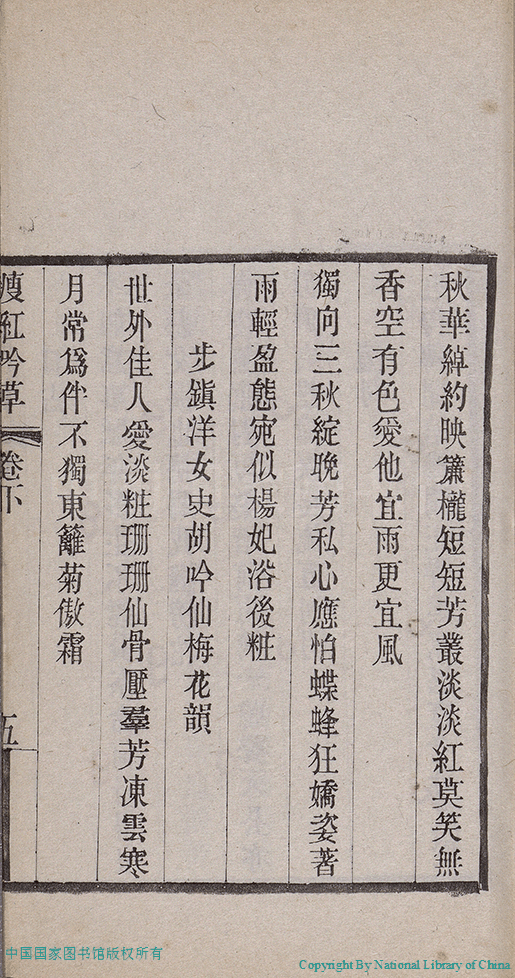 秋華綽約映簾櫳短短芳叢淡淡紅莫笑無
香空有色愛他宜雨更宜風
獨向三秋綻晚芳私心應怕蝶蜂狂嬌姿著
雨輕盈態宛似楊妃浴後粧
步鎮洋女史胡吟仙梅花韻
世外佳人愛淡粧珊珊仙骨壓羣芳凍雲寒
月常爲伴不獨東籬菊傲霜
瘦紅吟草
卷下
五
中国国家图书馆版权所有
Copyright By National Library of China